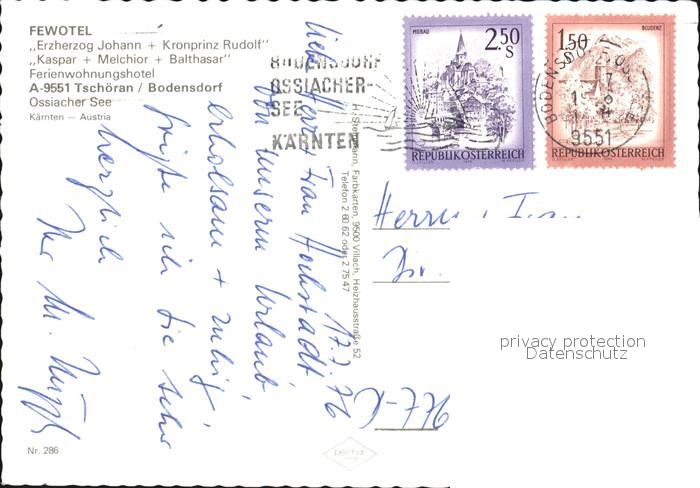 FEWOTEL
„Erzherzog Johann + Kronprinz Rudolf"
„Kaspar + Melchior + Balthasar"
Ferienwohnungshotel
A-9551 Tschöran / Bodensdorf
Ossiacher See
Kärnten – Austria
BODENSDORF
OSSIACHER-
SEE
KÄRNTEN
MURAU
2.50
S
REPUBLIK ÖSTERREICH
BLUDENZ
1.50
REPUBLIK ÖSTERREICH
BODENSDORF
9551
17.7.76
Liebe Herr + Frau
von unserm Urlaub
erholsam +
grüßt sie sehr
herzlich
Ihr M.
Farbkarten, 9500 Villach, Heizhausstraße 52
Telefon 2 60 62 oder 2 75 47
Herrn
privacy protection
Datenschutz
Nr. 286